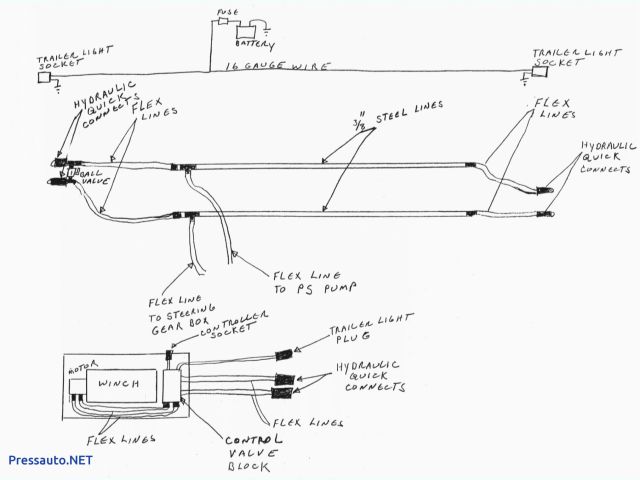 FUSE
BATTERY
TRAILER LIGHT
SOCKET
16 GAUGE WIRE
TRAILER LIGHT
SOCKET
HYDRAULIC
QUICK
CONNECTS
FLEX
LINES
3/8"
STEEL LINES
FLEX
LINES
HYDRAULIC
QUICK
CONNECTS
BALL
VALVE
FLEX LINE
TO PS PUMP
FLEX LINE
TO STEERING
GEAR BOX
CONTROLLER
SOCKET
TRAILER LIGHT
PLUG
MOTOR
WINCH
HYDRAULIC
QUICK
CONNECTS
FLEX LINES
FLEX LINES
CONTROL
VALVE
BLOCK
Pressauto.NET